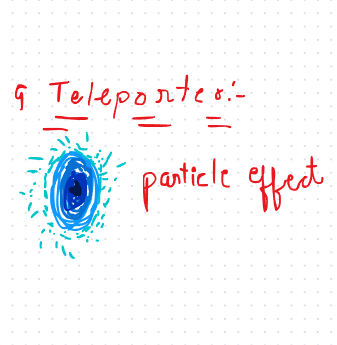 9 Teleporter:-
particle effect